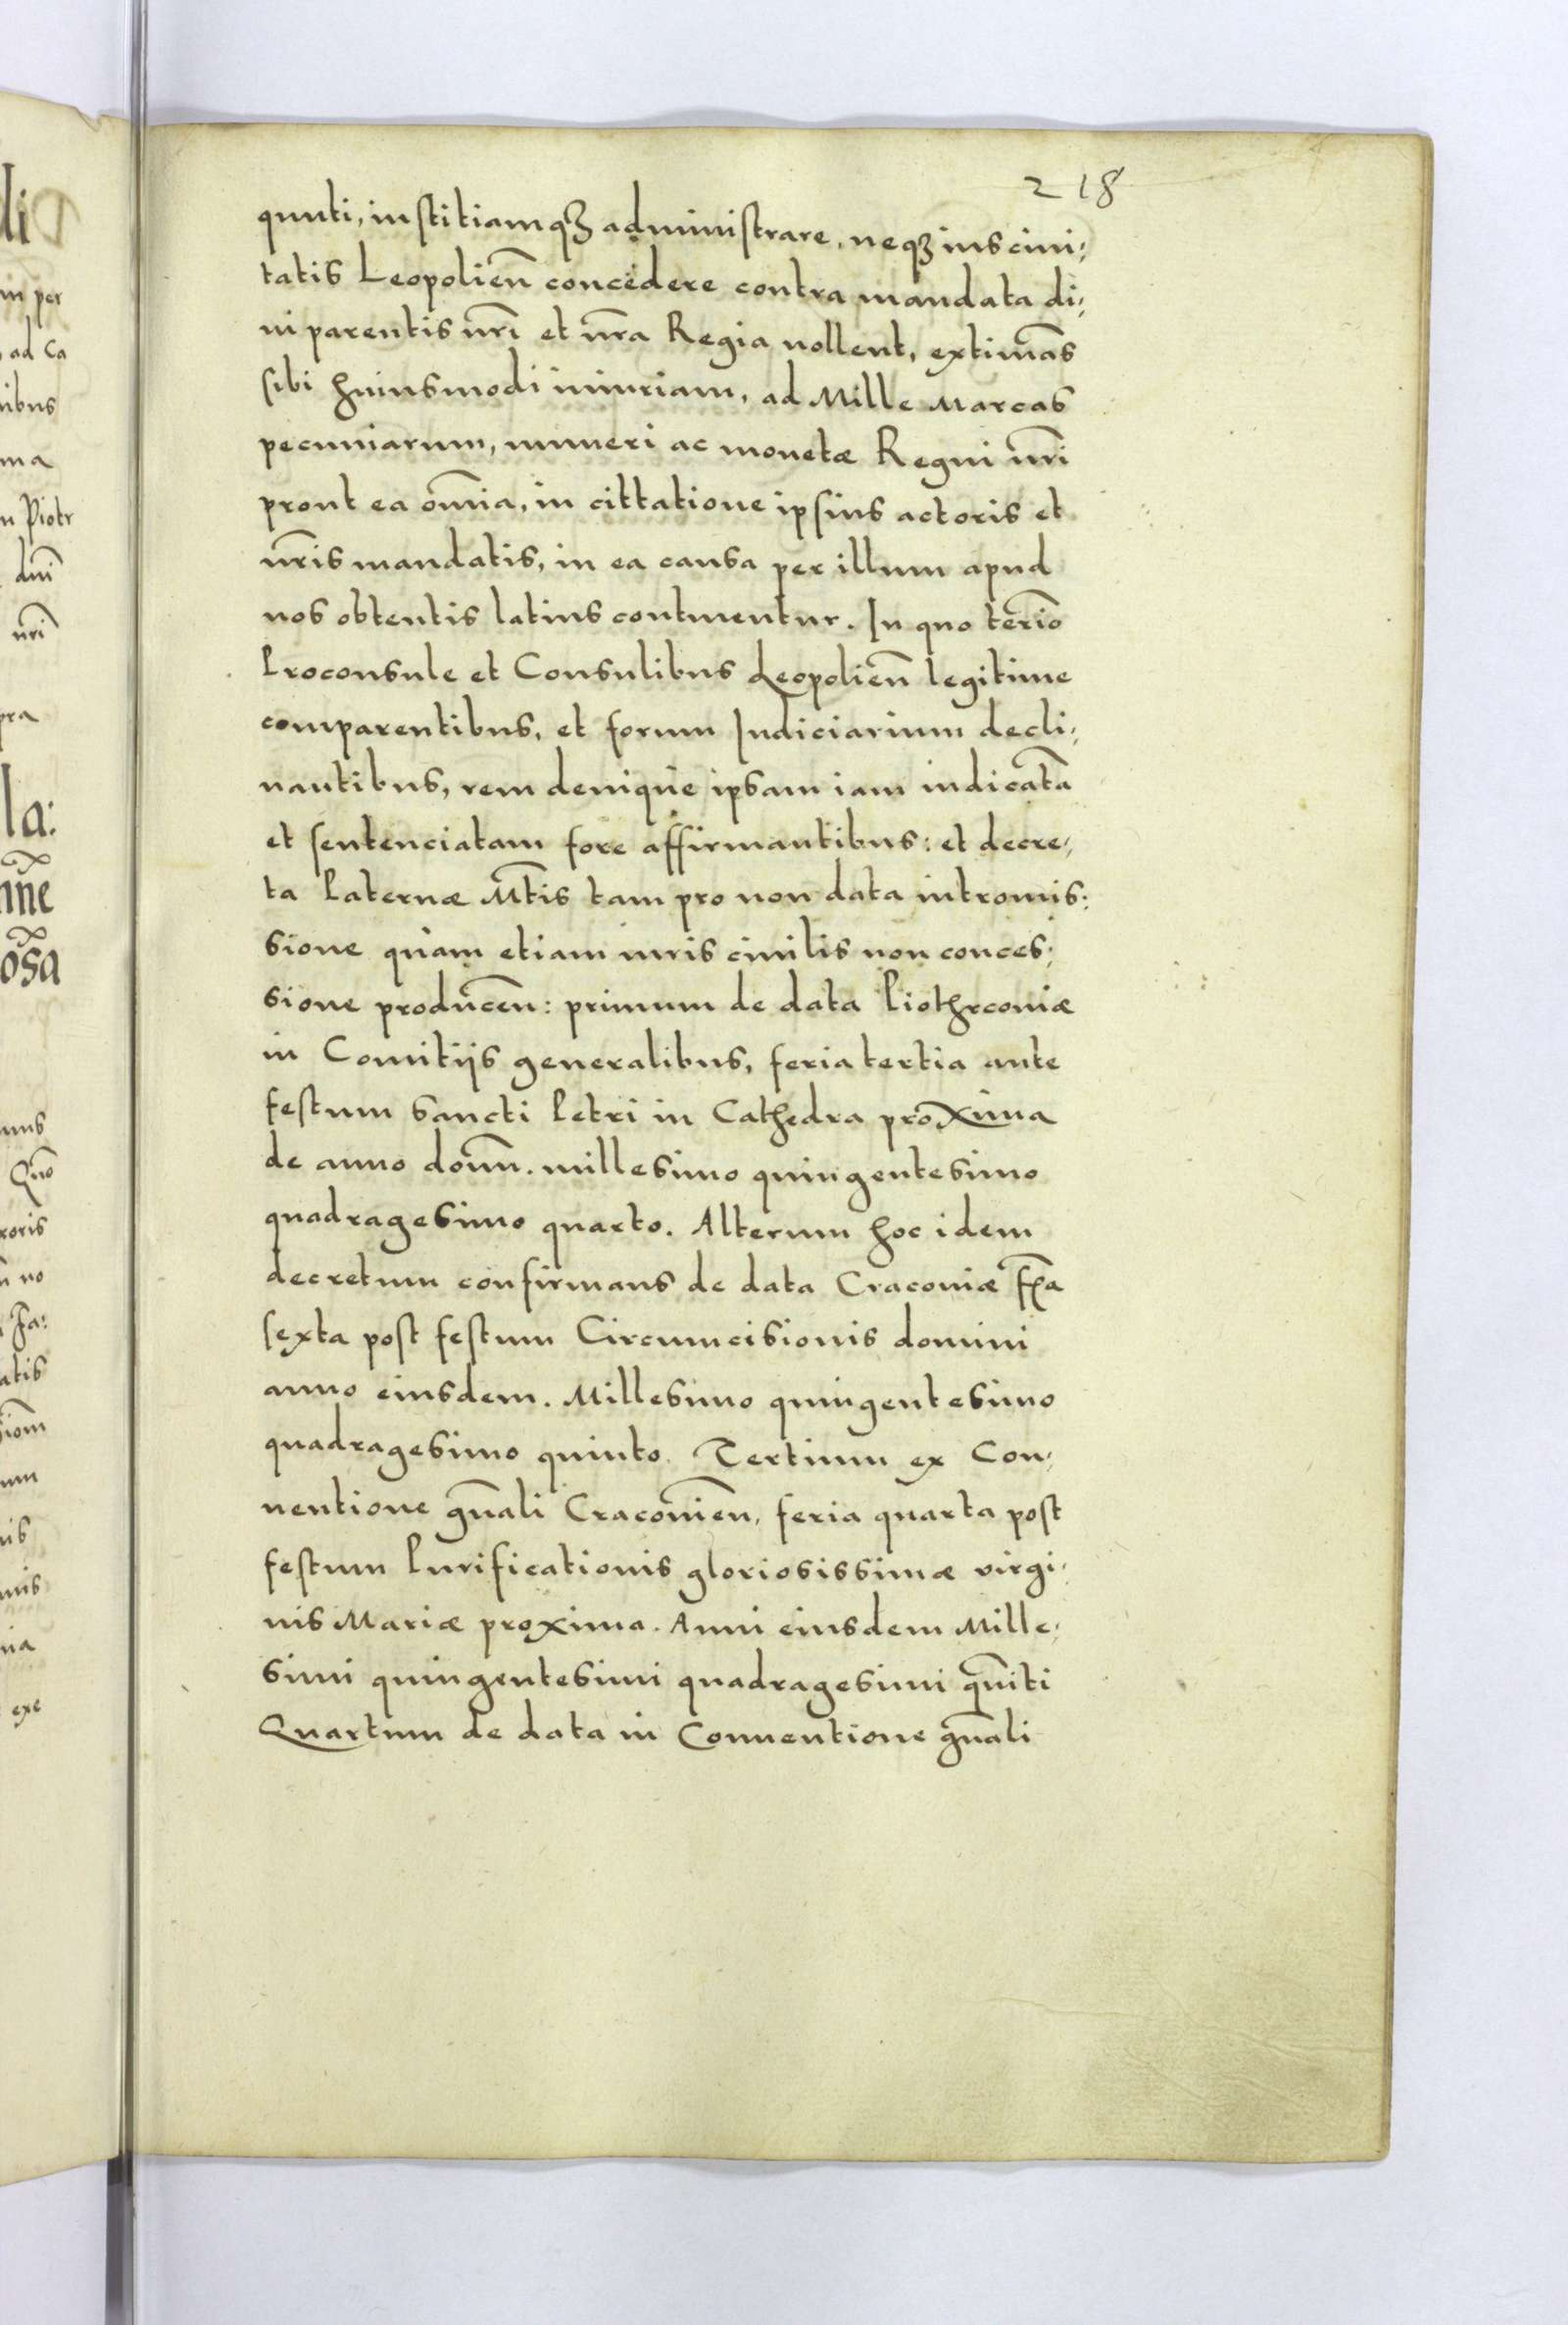 218
quuti, iustitiamq₃ administrare, neq₃ ius ciui:
tatis Leopolień concedere contra mandata di:
ui parentis nr̄i et nr̄a Regia nollent, extimās
sibi huiusmodi iniuriam, ad Mille Marcas
pecuniarum, numeri ac monetæ Regni nr̄i
prout ea om̄ia, in cittatione ipsius actoris et
nr̄is mandatis, in ea causa per illum apud
nos obtentis latius continentur. In quo ter̄io
Proconsule et Consulibus Leopolień legitime
comparentibus, et forum Iudiciarium decli:
nantibus, rem denique ipsam iam iudicatā
et sentenciatam fore affirmantibus: et decre:
ta Paternæ Mt̄is tam pro non data intromis:
sione quàm etiam iuris ciuilis non conces:
sione producēn: primum de data Piothrcouiæ
in Comitijs generalibus, feria tertia ante
festum Sancti Petri in Cathedra proxima
de anno domn̄. millesimo quingentesimo
quadragesimo quarto. Alterum hoc idem
decretum confirmans de data Cracouiæ fr̄a
sexta post festum Circumcisionis domini
anno eiusdem. Millesimo quingentesimo
quadragesimo quinto. Tertium ex Con:
uentione gn̄ali Cracouień, feria quarta post
festum Purificationis gloriosissimæ virgi:
nis Mariæ proxima. Anni eiusdem Mille:
simi quingentesimi quadragesimi qūiti
Quartum de data in Conuentione gn̄ali